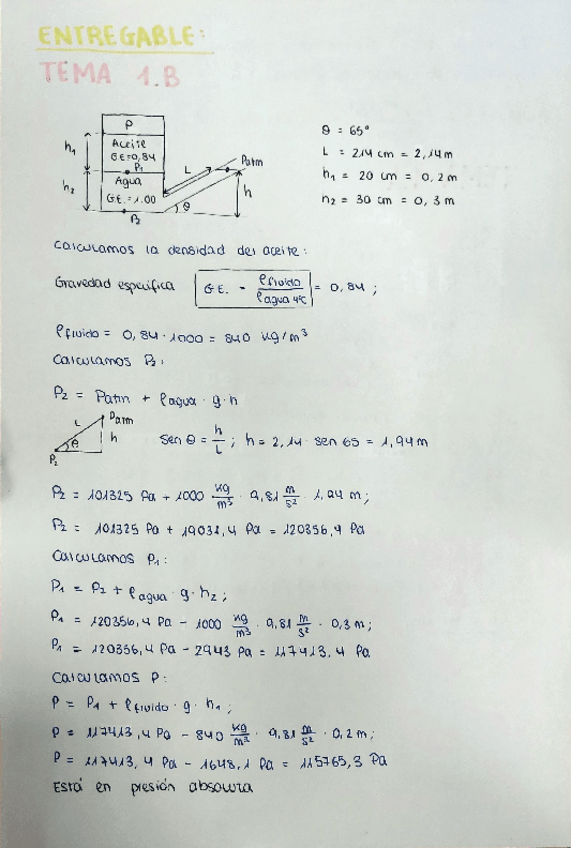 ENTREGABLE:
TEMA 1.B
P
Aceite
GE=0,84
P1
Agua
GE.=1.00
P2
h1
h2
L
θ
Patm
h
θ = 65°
L = 214 cm = 2,14 m
h1 = 20 cm = 0,2 m
h2 = 30 cm = 0,3 m
Calculamos la densidad del aceite:
Gravedad especifica GE. = ρfluido / ρagua 4ºC = 0,84 ;
ρfluido = 0,84 · 1000 = 840 kg/m³
Calculamos P2:
P2 = Patm + ρagua · g · h
L
Patm
h
θ
P2
sen θ = h/L ; h = 2,14 · sen 65 = 1,94 m
P2 = 101325 Pa + 1000 kg/m³ · 9,81 m/s² · 1,94 m ;
P2 = 101325 Pa + 19031,4 Pa = 120356,4 Pa
Calculamos P1:
P1 = P2 + ρagua · g · h2 ;
P1 = 120356,4 Pa - 1000 kg/m³ · 9,81 m/s² · 0,3 m ;
P1 = 120356,4 Pa - 2943 Pa = 117413,4 Pa
Calculamos P:
P = P1 + ρfluido · g · h1 ;
P = 117413,4 Pa - 840 kg/m³ · 9,81 m/s² · 0,2 m ;
P = 117413,4 Pa - 1648,1 Pa = 115765,3 Pa
Está en presión absoluta